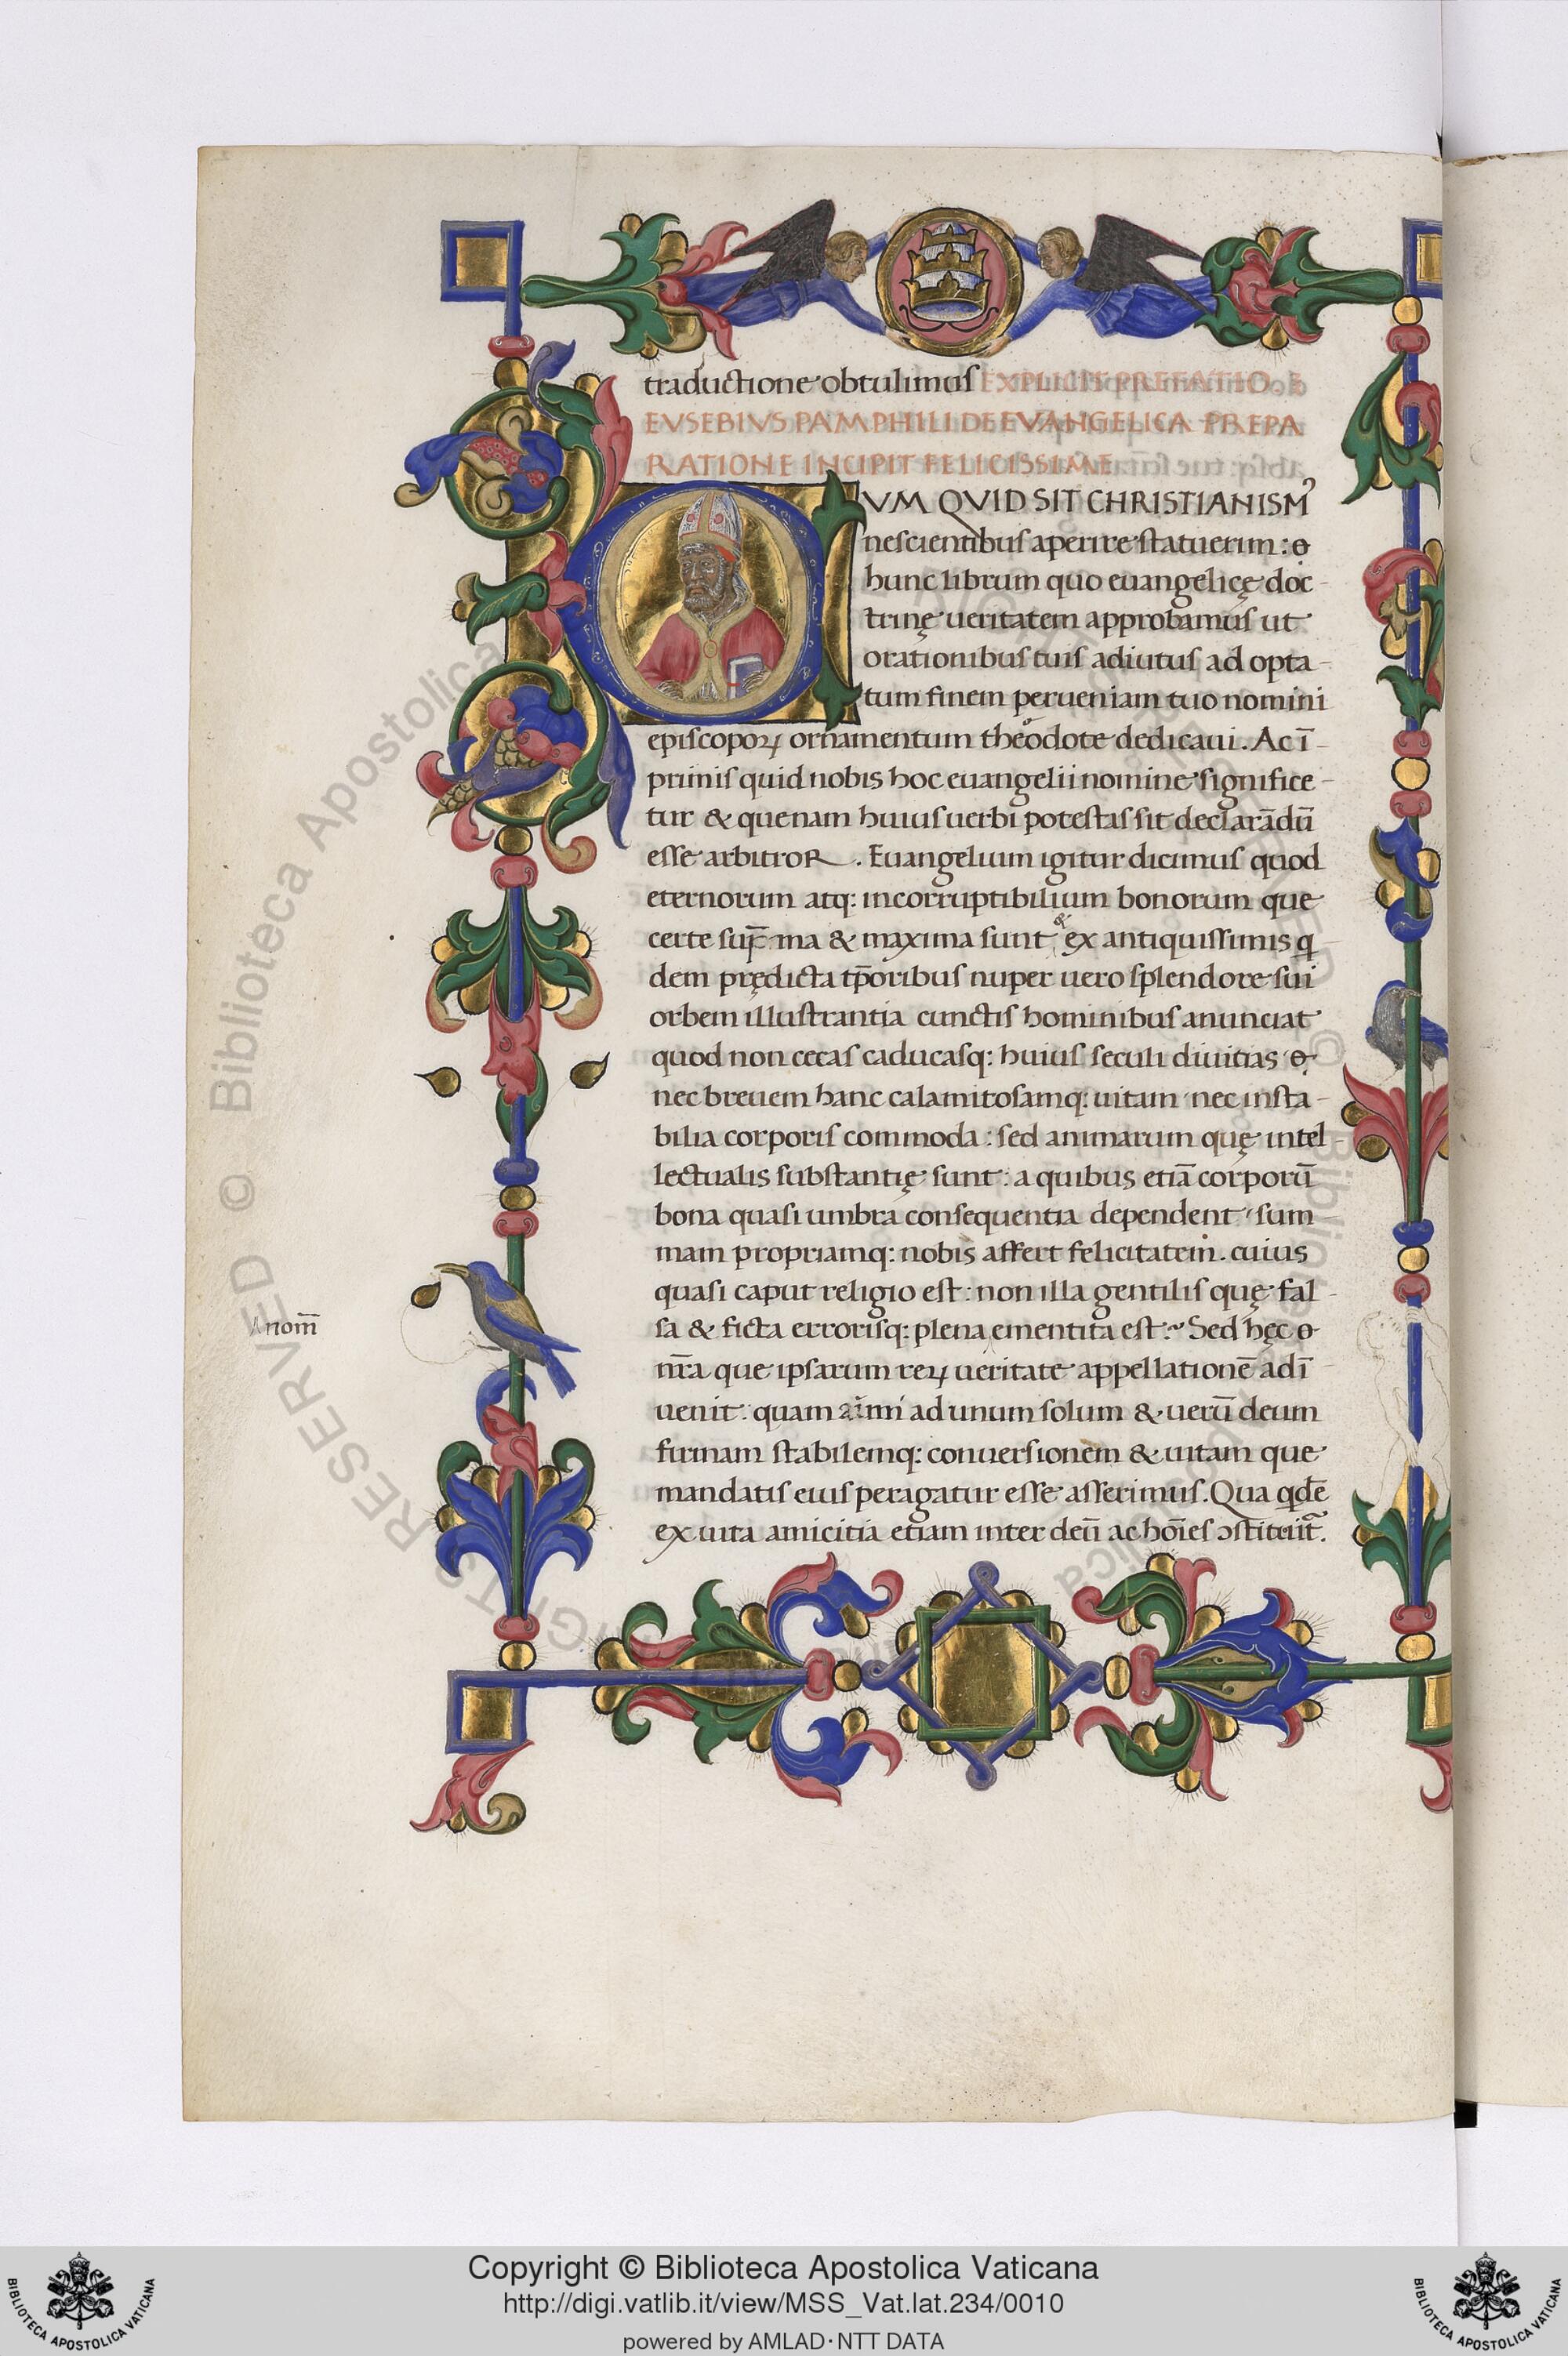 traductione obtulimus EXPLICIT PREFATIO. E
EVSEBIVS PAMPHILI DE EVANGELICA PREPA
RATIONE INCIPIT FELICISSIME
VM QVID SIT CHRISTIANISMꝰ
nescientibus aperire statuerim:
hunc librum quo euangelicę doc-
trinę ueritatem approbamus ut
orationibus tuis adiutus ad opta-
tum finem perueniam tuo nomini
episcopoꝝ ornamentum theodote dedicaui. Ac ī-
primis quid nobis hoc euangelii nomine significe-
tur & quenam huius uerbi potestas sit declarādū
esse arbitror. Euangelium igitur dicimus quod
eternorum atq: incorruptibilium bonorum que
certe sup̄ma & maxima sunt & ex antiquissimis q
dem prędicta tp̄oribus nuper uero splendore sui
orbem illustrantia cunctis hominibus anunciat
quod non cecas caducasq: huius seculi diuitias
nec breuem hanc calamitosamq: uitam nec insta-
bilia corporis commoda: sed animarum quę intel-
lectualis substantię sunt: a quibus etiā corporū
bona quasi umbra consequentia dependent sum
mam propriamq: nobis affert felicitatem. cuius
quasi caput religio est: non illa gentilis quę fal-
sa & ficta errorisq: plena ementita est Sed hęc
nr̄a que ipsarum reꝝ ueritate appellationē adī-
uenit: quam ad unum solum & uerū deum
firmam stabilemq: conuersionem & uitam que
mandatis eius peragatur esse asserimus. Qua qdē
ex uita amicitia etiam inter deū ac hoīes
nom̄
© Biblioteca Apostolica
RIGHTS RESERVED
Copyright © Biblioteca Apostolica Vaticana
http://digi.vatlib.it/view/MSS_Vat.lat.234/0010
powered by AMLAD·NTT DATA
BIBLIOTECA APOSTOLICA VATICANA
BIBLIOTECA APOSTOLICA VATICANA